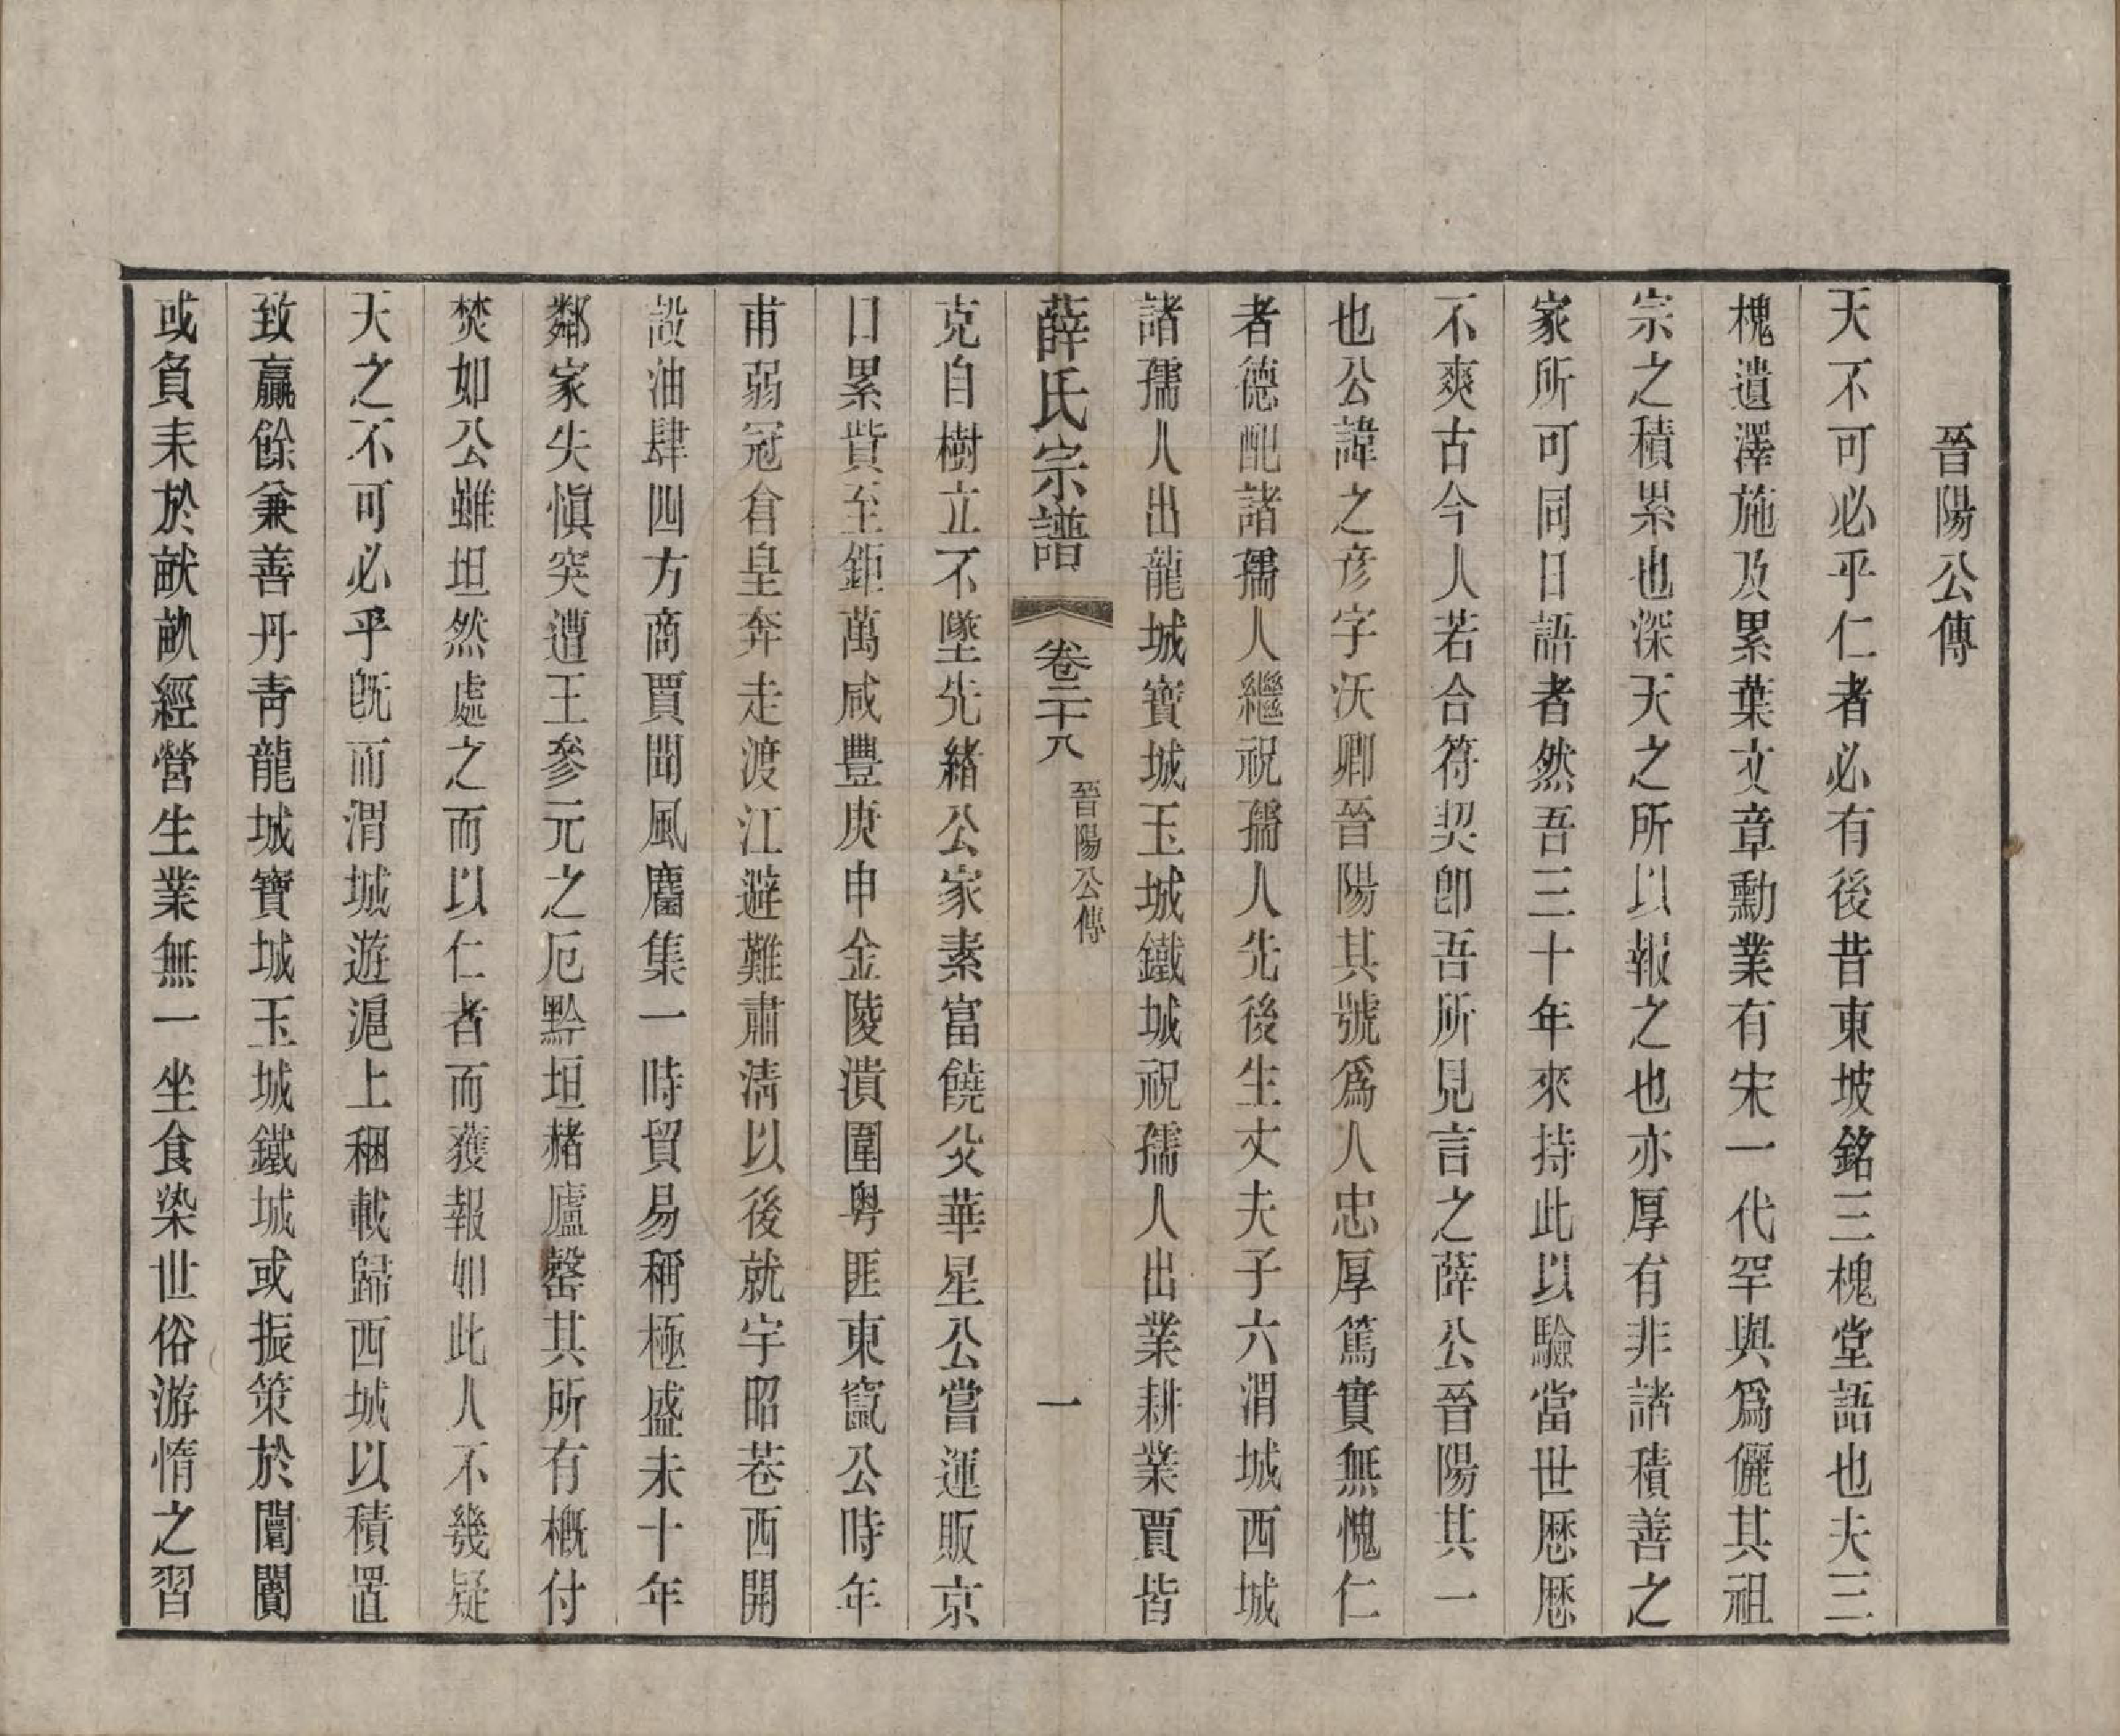 晉陽公傳
天不可必乎仁者必有後昔東坡銘三槐堂語也夫三
槐遺澤施及累葉文章勳業有宋一代罕與爲儷其祖
宗之積累也深天之所以報之也亦厚有非諸積善之
家所可同日語者然吾三十年來持此以驗當世歷歷
不爽古今人若合符契卽吾所見言之薛公晉陽其一
也公諱之彥字沃卿晉陽其號爲人忠厚篤實無愧仁
者德配諸孺人繼祝孺人先後生丈夫子六渭城西城
諸孺人出龍城寶城玉城鐵城祝孺人出業耕業賈皆
薛氏宗譜 卷二十八 晉陽公傳 一
克自樹立不墜先緒公家素富饒父華星公嘗運販京
口累貲至鉅萬咸豐庚申金陵潰圍粵匪東竄公時年
甫弱冠倉皇奔走渡江避難肅淸以後就宇昭巷西開
設油肆四方商賈聞風麕集一時貿易稱極盛未十年
鄰家失愼突遭王參元之厄黔垣赭廬罄其所有槪付
焚如公雖坦然處之而以仁者而獲報如此人不幾疑
天之不可必乎旣而渭城遊滬上稛載歸西城以積置
致贏餘兼善丹靑龍城寶城玉城鐵城或振策於闤闠
或負耒於畎畝經營生業無一坐食染世俗游惰之習